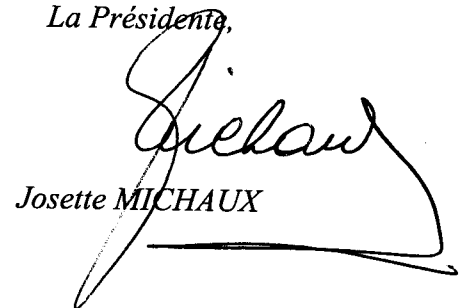 La Présidente,
Michaux
Josette MICHAUX